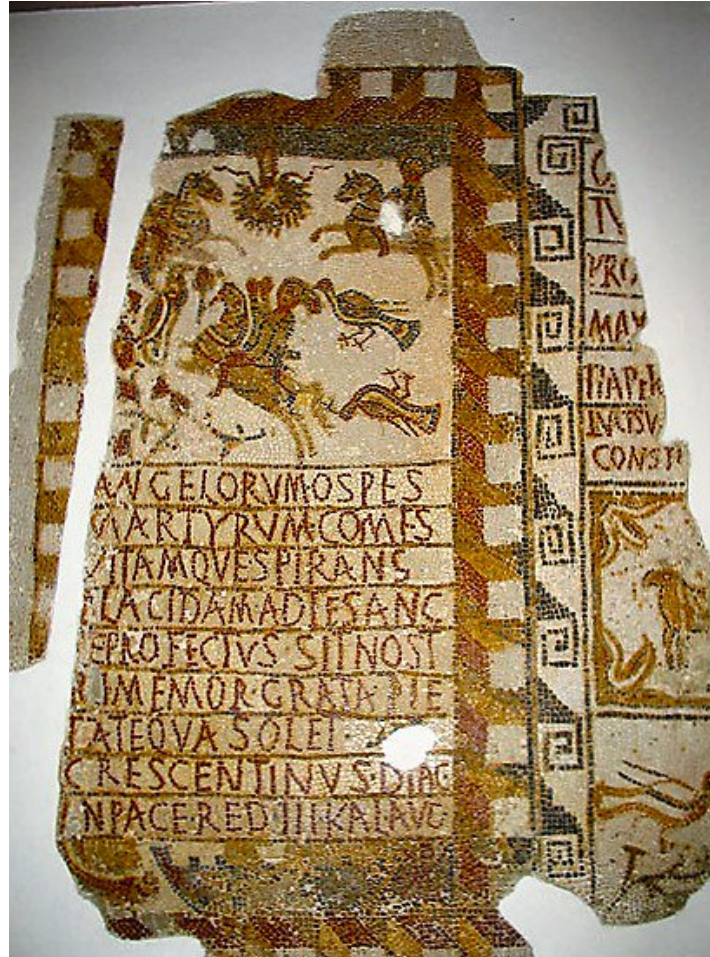 ANGELORVM OSPES
MARTYRVM COMES
VITAMQVE SPIRANS
PLACIDAM AD TE SANC
E PROFECTVS·SIT NOST
RI MEMOR·GRATA PIE
TATE QVA SOLET·
CRESCENTINVS·DIAC
IN PACE·RED III KAL AVG
PRO
MAV
INATSV
CONST